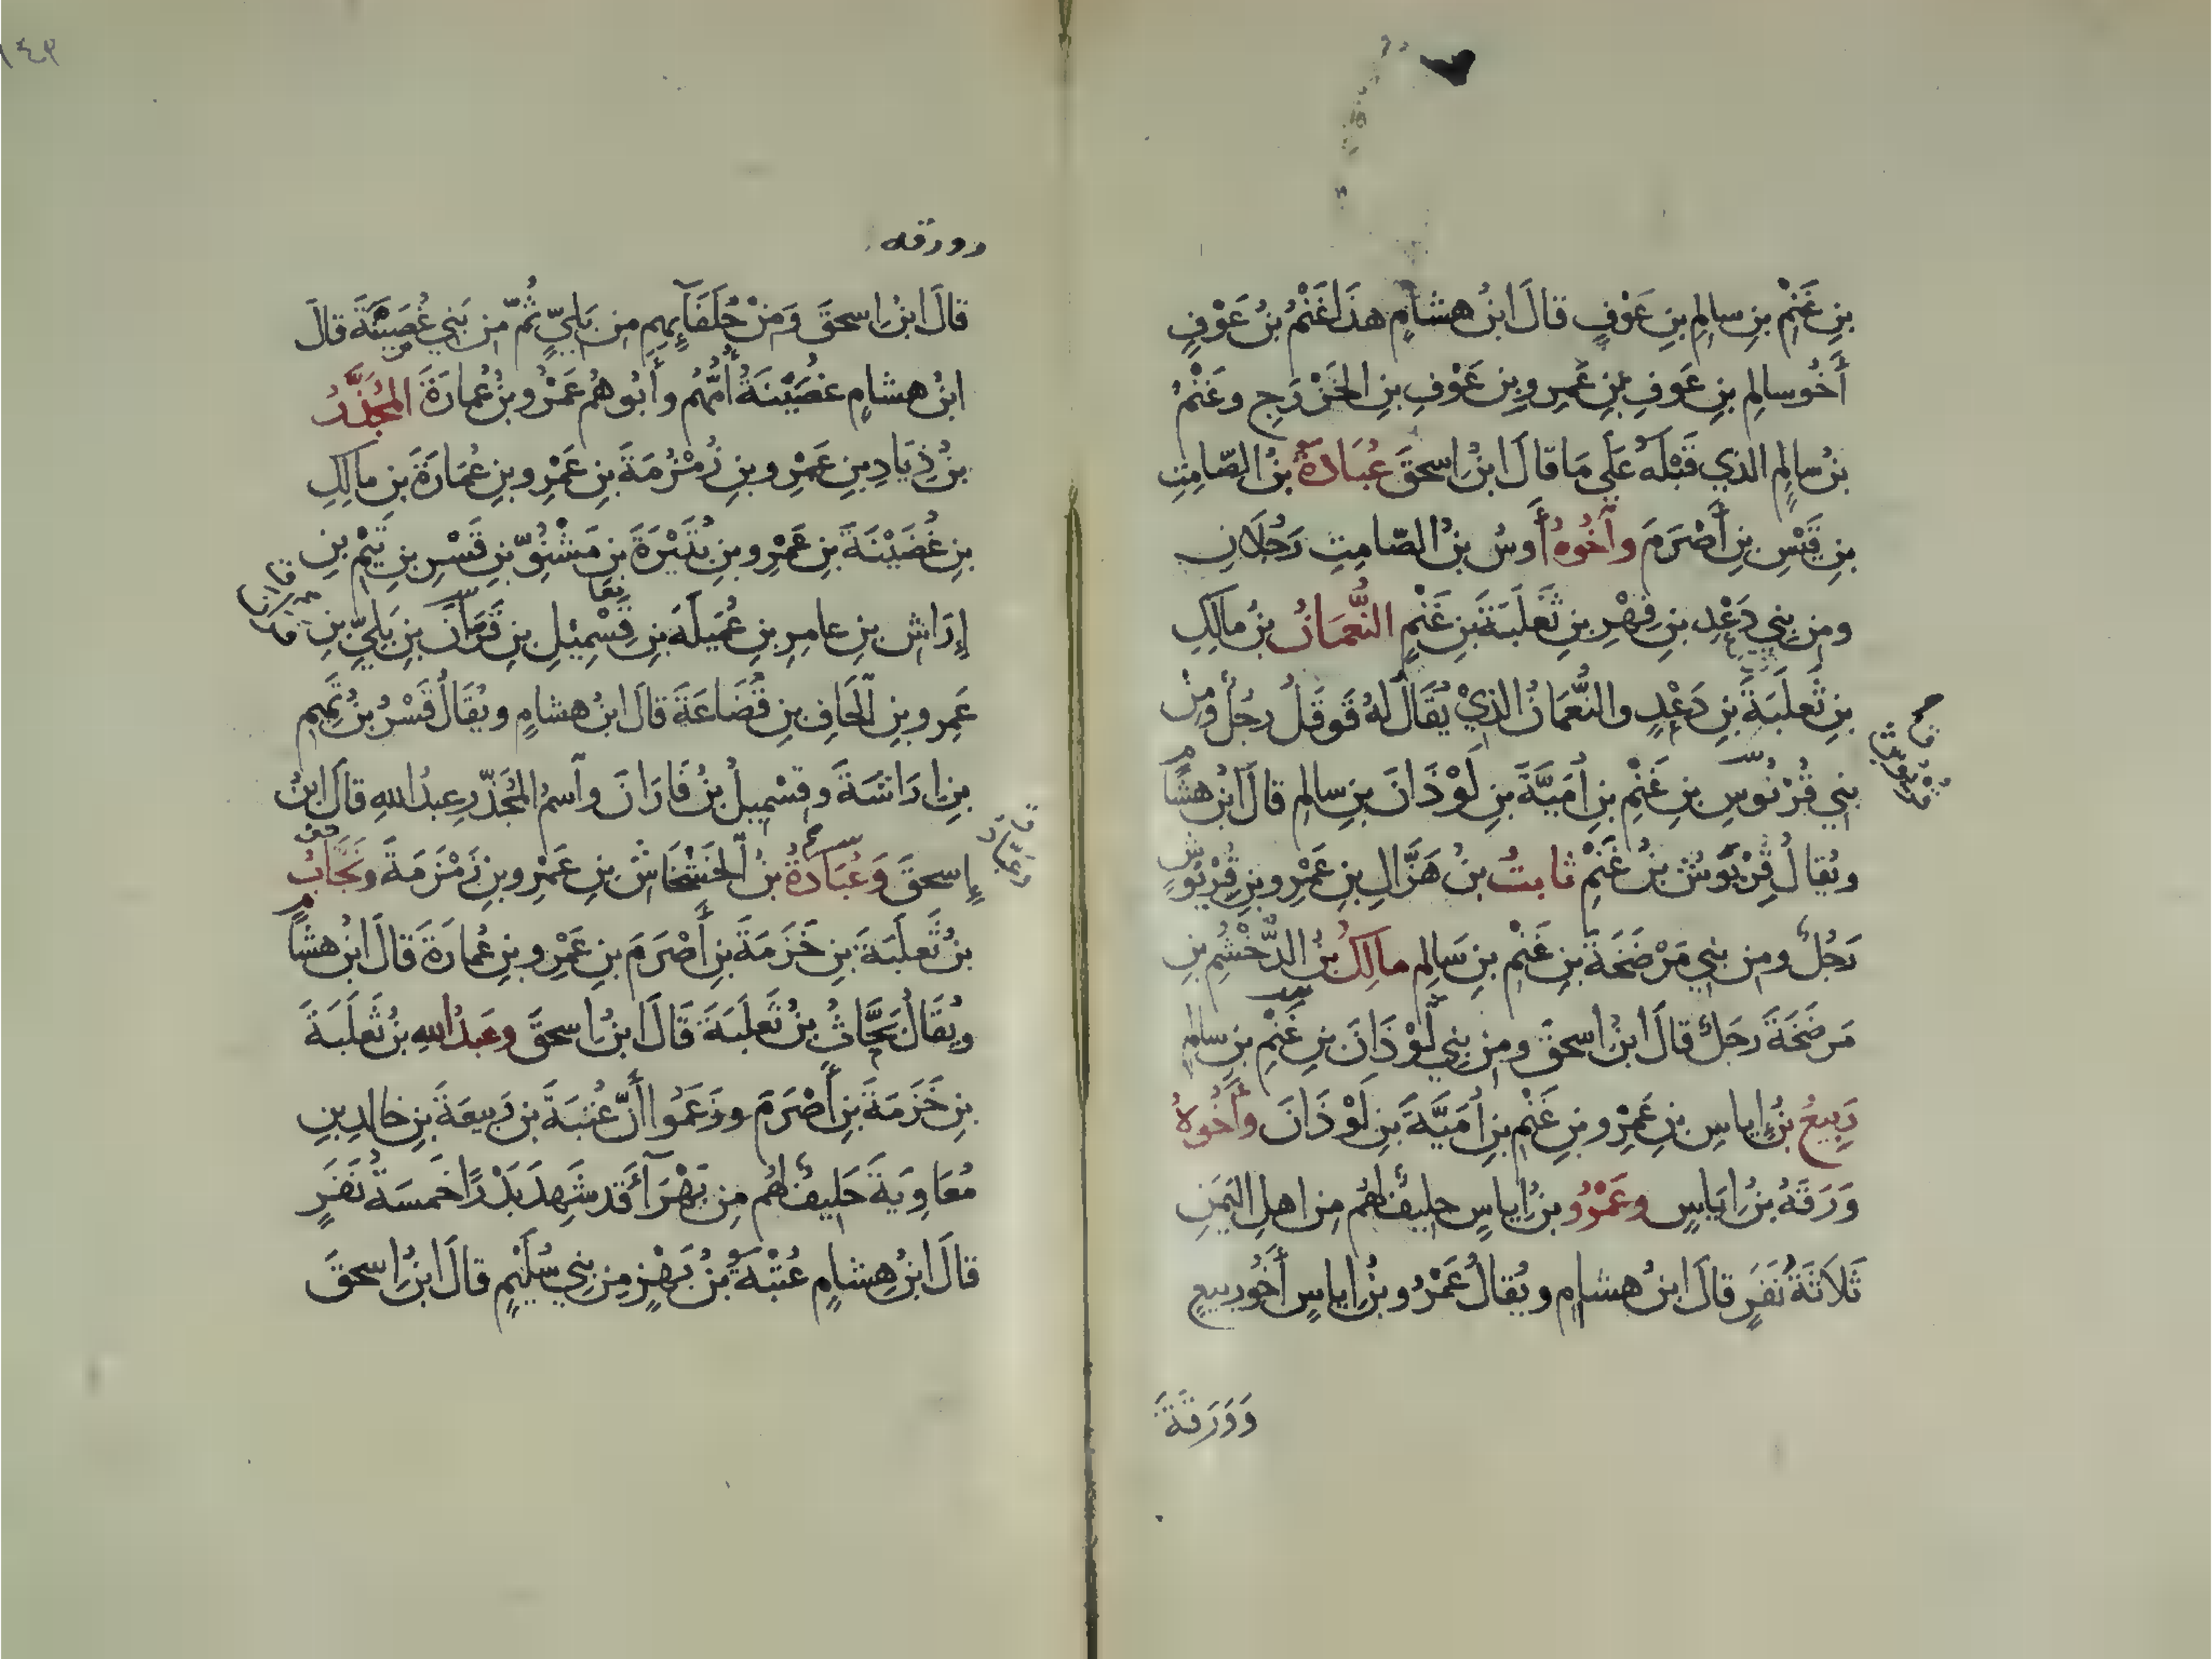 بِنِ غَنْمِ بنِ سالِمِ بنِ عَوْفٍ قالَ ابنُ هشامٍ هذَا غَنْمُ بنُ عَوْفٍ
أَخُو سالِمِ بنِ عَوفِ بنِ عَمرِو بنِ عَوْفِ بنِ الخَزْرَجِ وغَنْمُ
بنُ سالِمٍ الذي قَبْلَهُ عَلَى مَا قالَ ابنُ اسحقَ عُبَادةُ بنُ الصّامِتِ
بنِ قَيْسِ بنِ أَصْرَمَ وأَخُوهُ أَوسُ بنُ الصّامِتِ رَجُلَانِ
ومِن بني دَعْدِ بنِ فِهْرِ بنِ ثَعلَبَةَ بنِ غَنْمٍ النُّعْمَانُ بنُ مالِكِ
بنِ ثَعلَبَةَ بنِ دَعْدٍ والنُّعْمَانُ الذِيْ يُقَالُ لهُ قَوقَلُ رجُلٌ ومِنْ
بني قُرْيُوسِ بنِ غَنْمِ بنِ أُمَيَّةَ بنِ لَوْذَانَ بنِ سالِمٍ قالَ ابنُ هشامٍ
ويُقالُ قِرْبَوشُ بنُ غَنْمٍ ثابتُ بنُ هَزَّالِ بنِ عَمْرِو بنِ قِرْبَوشٍ
رَجُلٌ ومِن بني مَرْضَخَةَ بنِ غَنْمِ بنِ سَالِمٍ مالِكُ بنُ الدُّخْشُمِ بنِ
مَرضَخَةَ رَجلٌ قالَ ابنُ اسحقَ ومِن بني لَوْذَانَ بنِ غَنْمِ بنِ سالمٍ
رَبِيعُ بنُ إياسِ بنِ عَمْرِو بنِ غَنْمِ بنِ أُمَيَّةَ بنِ لَوْذَانَ وأَخُوهُ
وَرَقَةُ بنُ اياسٍ وعَمْرُو بنُ اياسٍ حليفٌ لهُم مِن اهلِ اليَمَنِ
ثَلاثَةُ نَفَرٍ قالَ ابنُ هشامٍ ويُقالُ عَمْرُو بنُ إياسٍ أَخُو ربيعٍ
وَوَرَقَةَ
١٤٣
وورقه
قالَ ابنُ اسحقَ ومِنْ حُلَفَآئِهِم مِن بَلِيٍّ ثُمّ مِن بَني غُصَيْنَةَ قالَ
ابنُ هشامٍ غُصَيْنَةُ أُمُّهُم وأَبُوهُم عَمْرُو بنُ عُمارَةَ المُجَذَّرُ
بنُ ذِيَادِ بنِ عَمْرِو بنِ زُمْزُمَةَ بنِ عَمْرِو بنِ عُمَارَةَ بنِ مالِكِ
بنِ غُصَيْنَةَ بنِ عَمْرِو بنِ بُتَيْرَةَ بنِ مَشْنُوِّ بنِ قَسْرِ بنِ تَيْمِ بنِ
إِرَاشِ بنِ عامِرِ بنِ عُمَيلَةَ بنِ قِسْمِيْلِ بنِ فَرَانَ بنِ بَلِيِّ بنِ
عَمرِو بنِ الحَافِ بنِ قُضَاعَةَ قالَ ابنُ هشامٍ ويُقَالُ قَسْرُ بنُ تَميمِ
بنِ ارَاشَةَ وقِسْمِيلُ بنُ فَارَانَ وآسمُ المُجَذّرِ عبدُ اللهِ قالَ ابنُ
إسحقَ وَعُبَادةُ بنُ الخَشْخَاشِ بنِ عَمْرِو بنِ زَمْزَمَةَ ونَحَّابُ
بنُ ثَعلَبَةَ بنِ خَزَمَةَ بنِ أَصْرَمَ بنِ عَمْرِو بنِ عُمارَةَ قالَ ابنُ هشامٍ
ويُقَالُ بَحَّاثُ بنُ ثَعلَبَةَ قَالَ ابنُ اسحقَ وعَبدُ اللهِ بنُ ثَعلَبَةَ
بنِ خَزَمَةَ بنِ أَصْرَمَ وزَعَمُوا أَنّ عُتبَةَ بنَ رَبِيعَةَ بنِ خالدِ بنِ
مُعَاوِيَةَ حَليفٌ لهُم مِن بَهْرَآءَ قَد شَهِدَ بَدْرًا خَمسَةُ نَفَرٍ
قالَ ابنُ هِشامٍ عُتْبَةُ بنُ بَهْزٍ مِن بني سُلَيْمٍ قالَ ابنُ اسحقَ